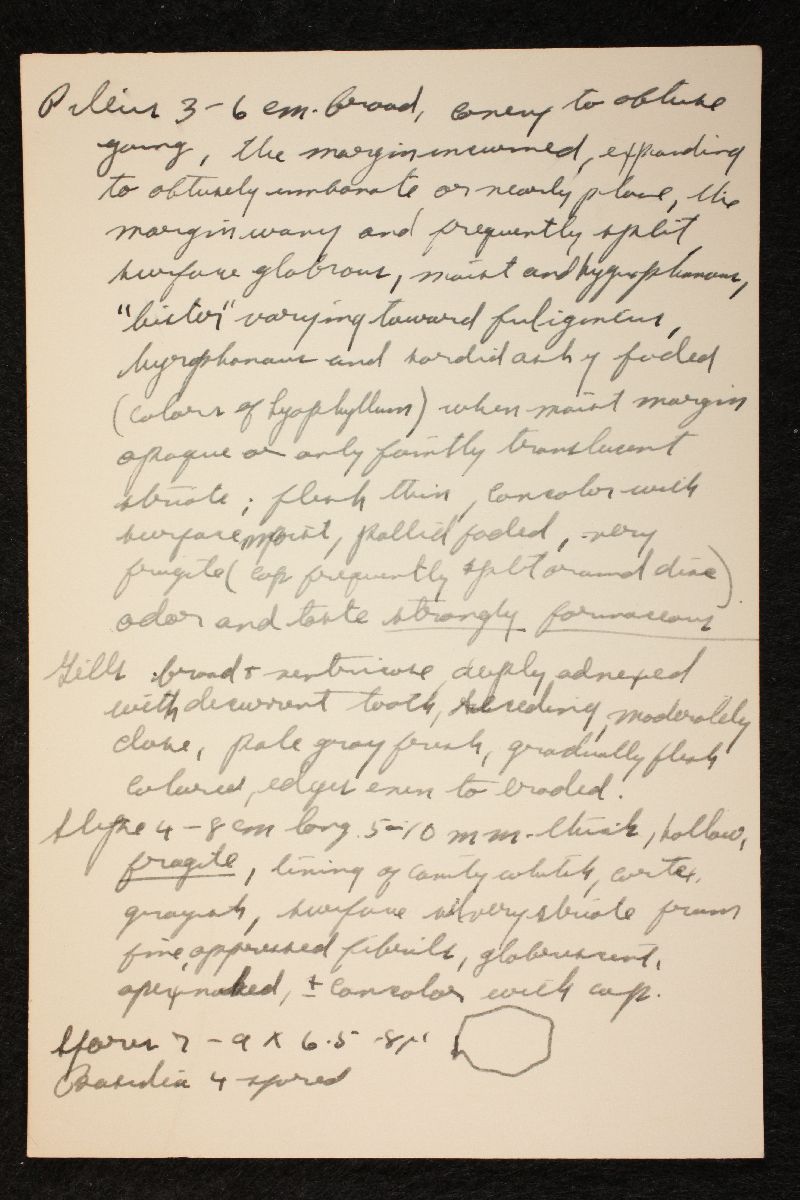 Pileus 3-6 cm. broad, convex to obtuse
young, the margin incurved, expanding
to obtusely umbonate or nearly plane, the
margin wavy and frequently split,
surface glabrous, moist and hygrophanous,
"bister" varying toward fuliginous,
hygrophanous and sordid ashy faded
(colors of Lyophyllum) when moist margin
opaque or only faintly translucent
striate; flesh thin, concolor with
surface moist, pallid faded, very
fragile (cap frequently split around disc)
odor and taste strongly farinaceous
Gills broad + ventricose, deeply adnexed
with decurrent tooth, seceding, moderately
close, pale gray fresh, gradually flesh
colored, edges even to eroded.
Stipe 4-8 cm long 5-10 mm. thick, hollow,
fragile, lining of cavity whitish, cortex
grayish, surface silvery striate from
fine, appressed fibrils, glabrescent,
apex naked, ± concolor with cap.
Spores 7-9 x 6.5-8µ
Basidia 4-spored